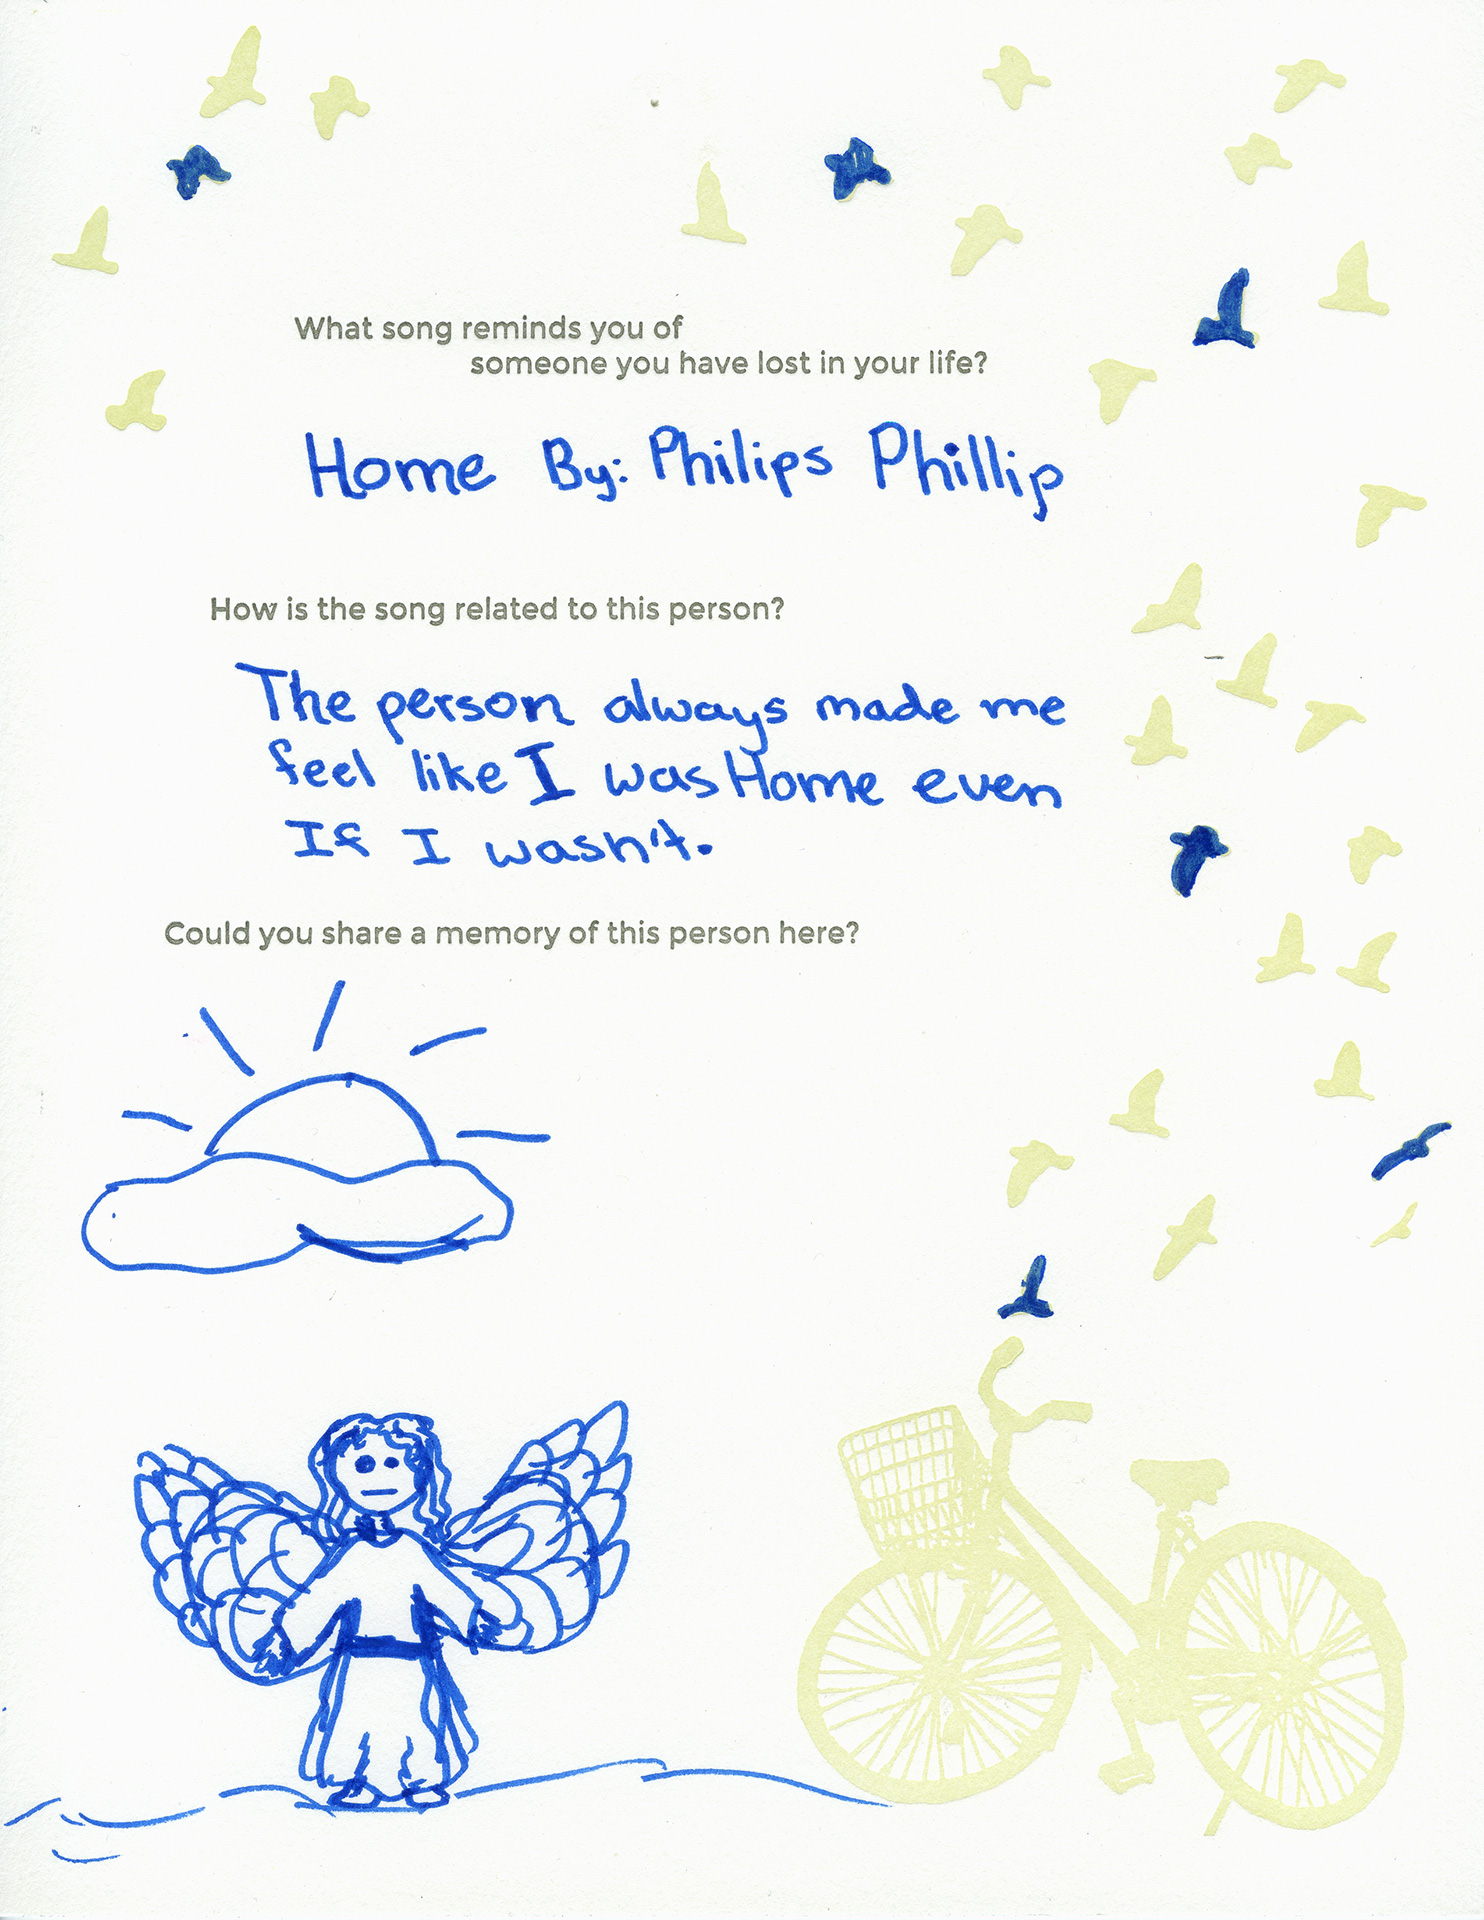 What song reminds you of
someone you have lost in your life?
Home By: Philips Phillip
How is the song related to this person?
The person always made me
feel like I was Home even
If I wasn't.
Could you share a memory of this person here?